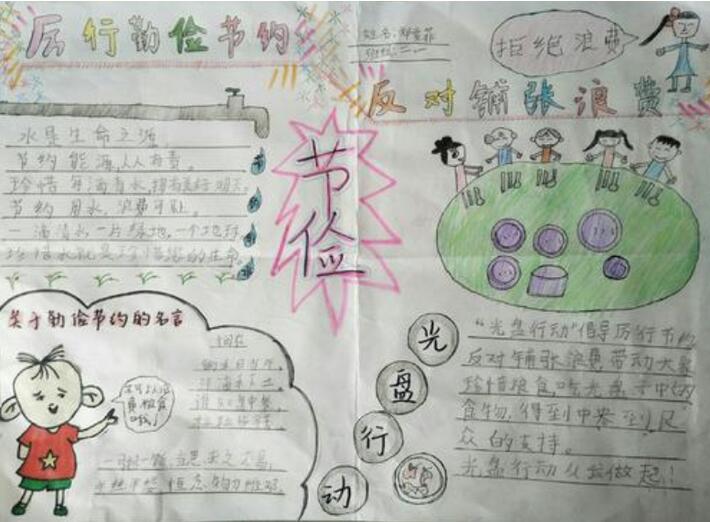 厉行勤俭节约
姓名:郑
班级:二一
拒绝浪费
反对铺张浪费
水是生命之源,
节约能源,人人有责。
珍惜每滴清水,拥有美好明天。
节约用水,浪费可耻。
一滴清水一片绿地,一个地球
珍惜水就是珍惜您的生命
节约用水
节俭
关于勤俭节约的名言
锄禾日当午,
汗滴禾下土。
谁知盘中餐,
粒粒皆辛苦。
一粥一饭,当思来之不易,
半丝半缕,恒念物力维艰。
光盘行动
“光盘行动”倡导厉行节约
反对铺张浪费带动大家
珍惜粮食,吃光盘子中的
食物,得到中央到民
众的支持。
光盘行动从我做起!